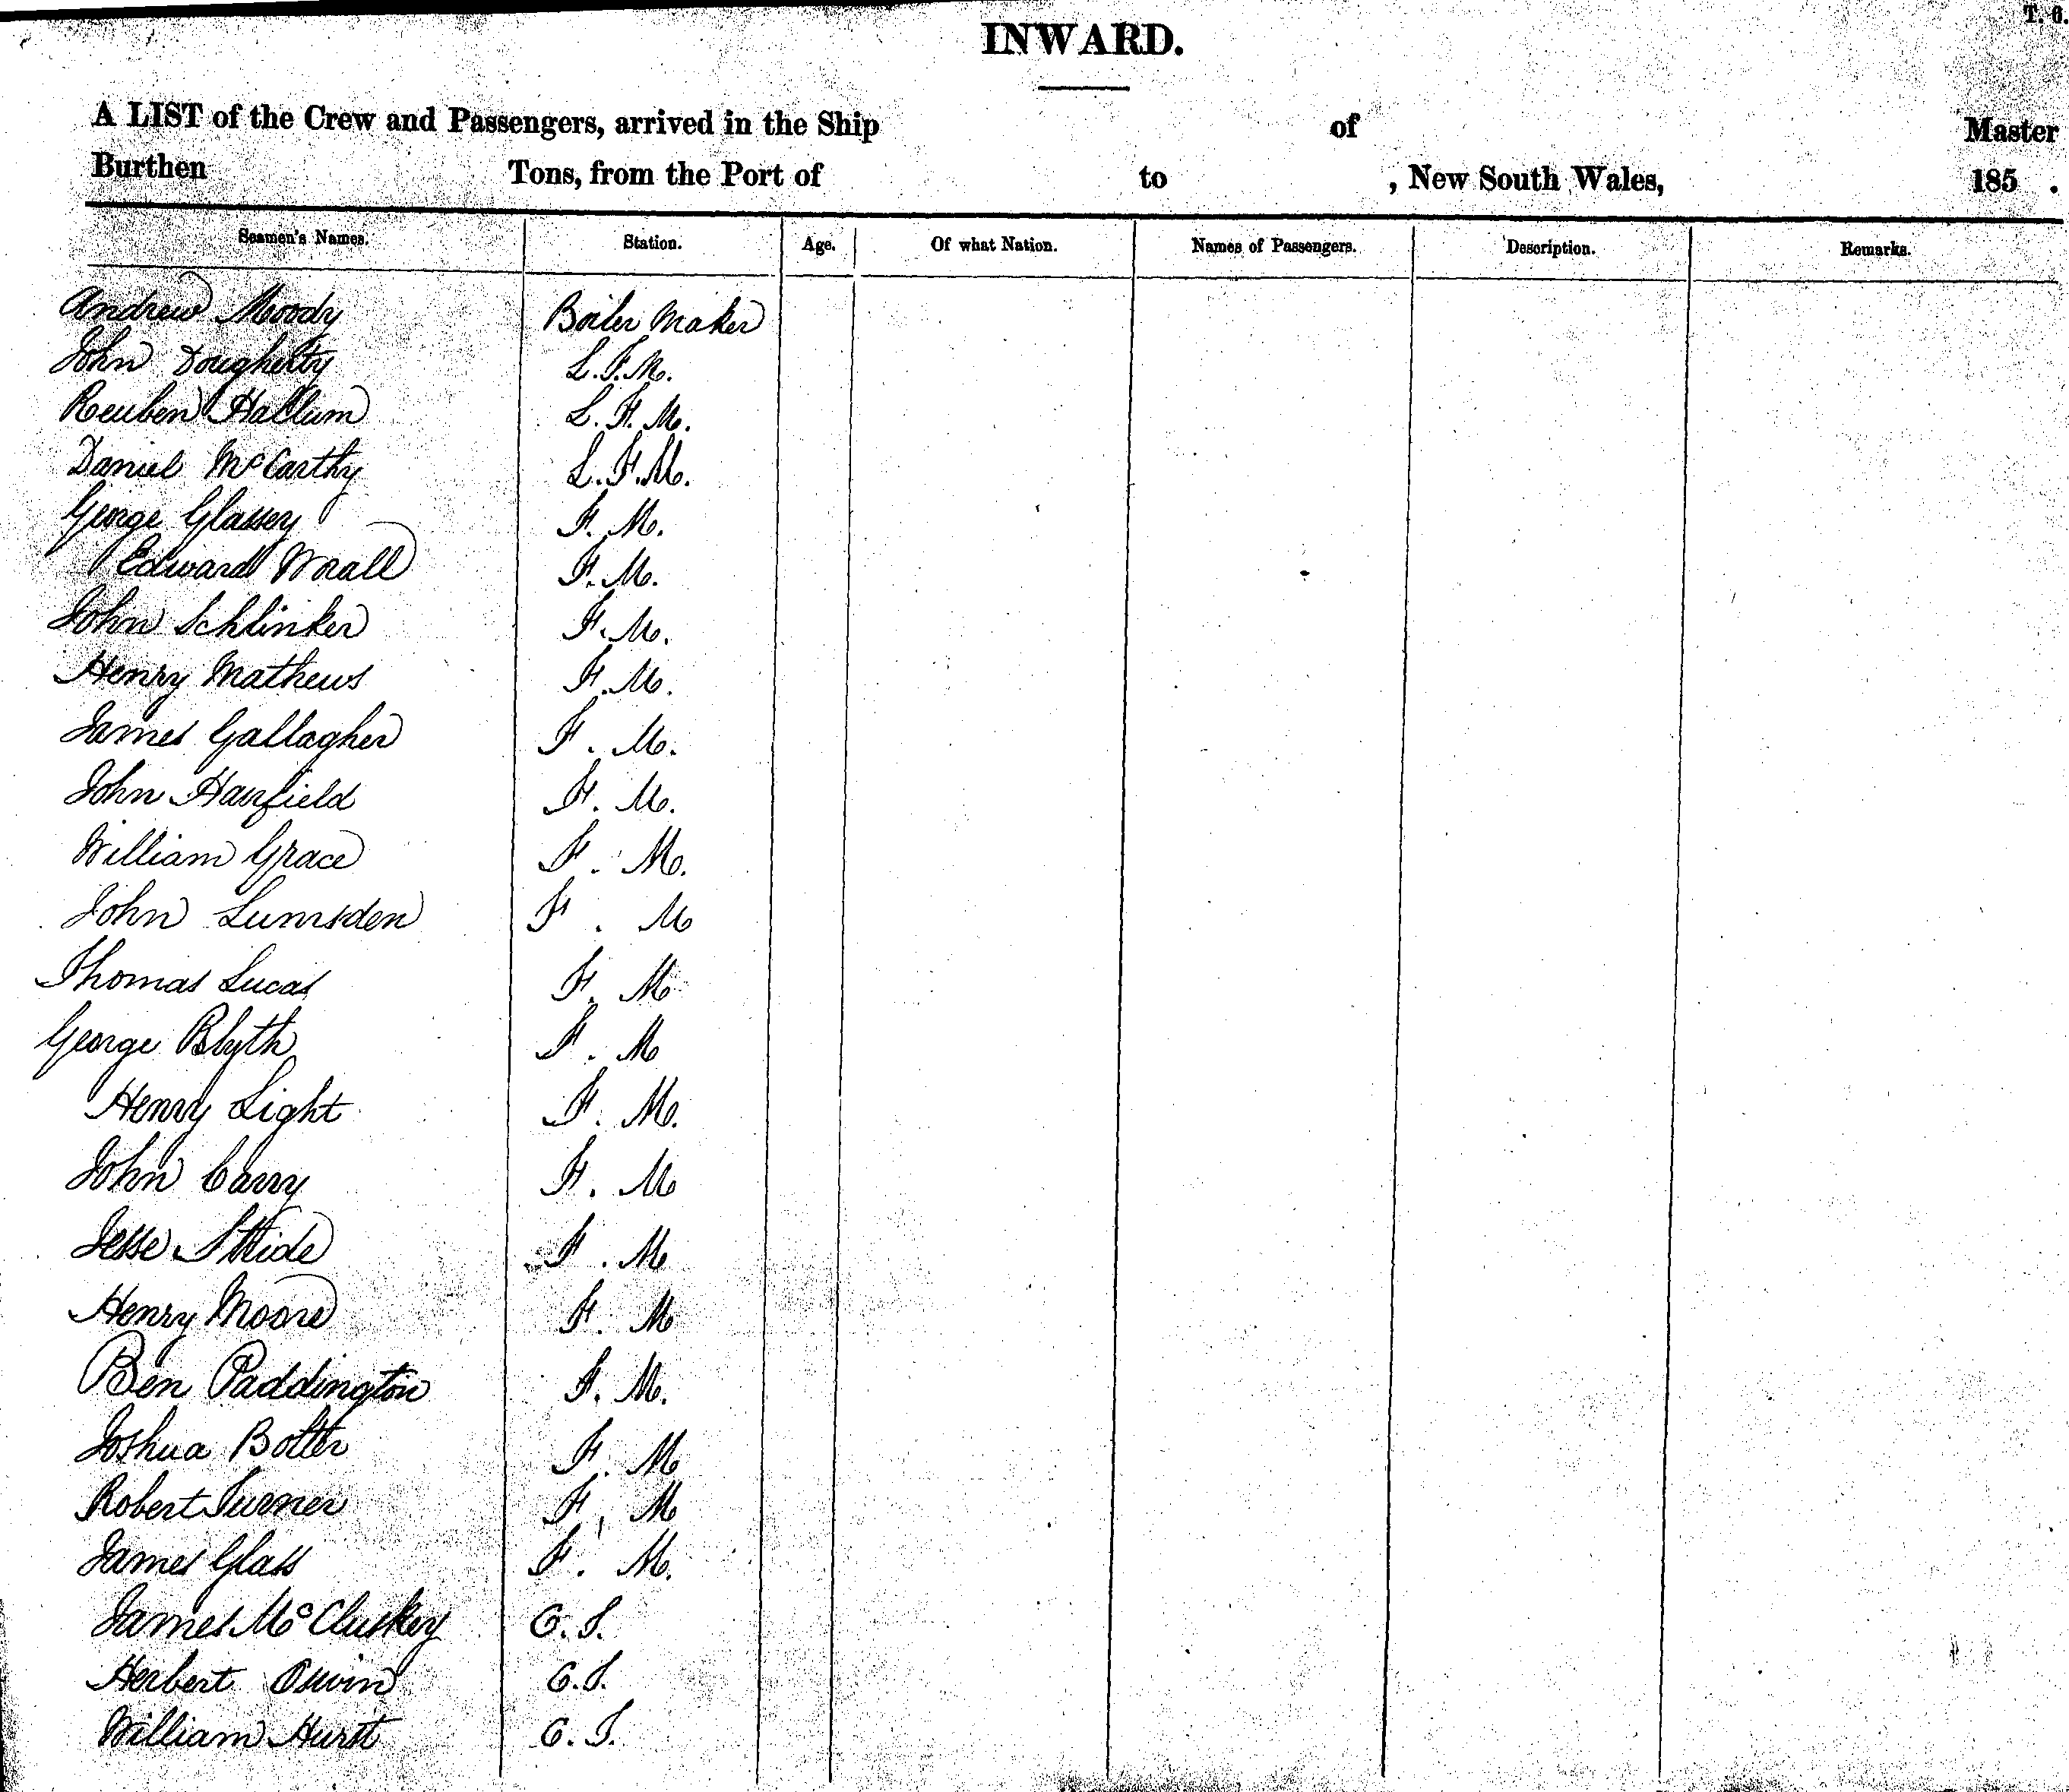 T. 6.
INWARD.
A LIST of the Crew and Passengers, arrived in the Ship of Master
Burthen Tons, from the Port of to , New South Wales, 185 .
Seamen's Names. Station. Age. Of what Nation. Names of Passengers. Description. Remarks.
Andrew Moody Boiler Maker
John Dougherty L.F.M.
Reuben Hallum L.F.M.
Daniel McCarthy L.F.M.
George Glassey F.M.
Edward Worall F.M.
John Schlinker F.M.
Henry Mathews F.M.
James Gallagher F.M.
John Hanfield F.M.
William Grace F.M.
John Lumsden F.M
Thomas Lucas F.M
George Blyth F.M
Henry Light F.M.
John Carry F.M
Jesse Stride F.M
Henry Moore F.M
Ben Paddington F.M.
Joshua Bolter F.M
Robert Turner F.M
James Glass F.M.
James McCluskey C.T.
Herbert Oswin C.T.
William Hurst C.T.